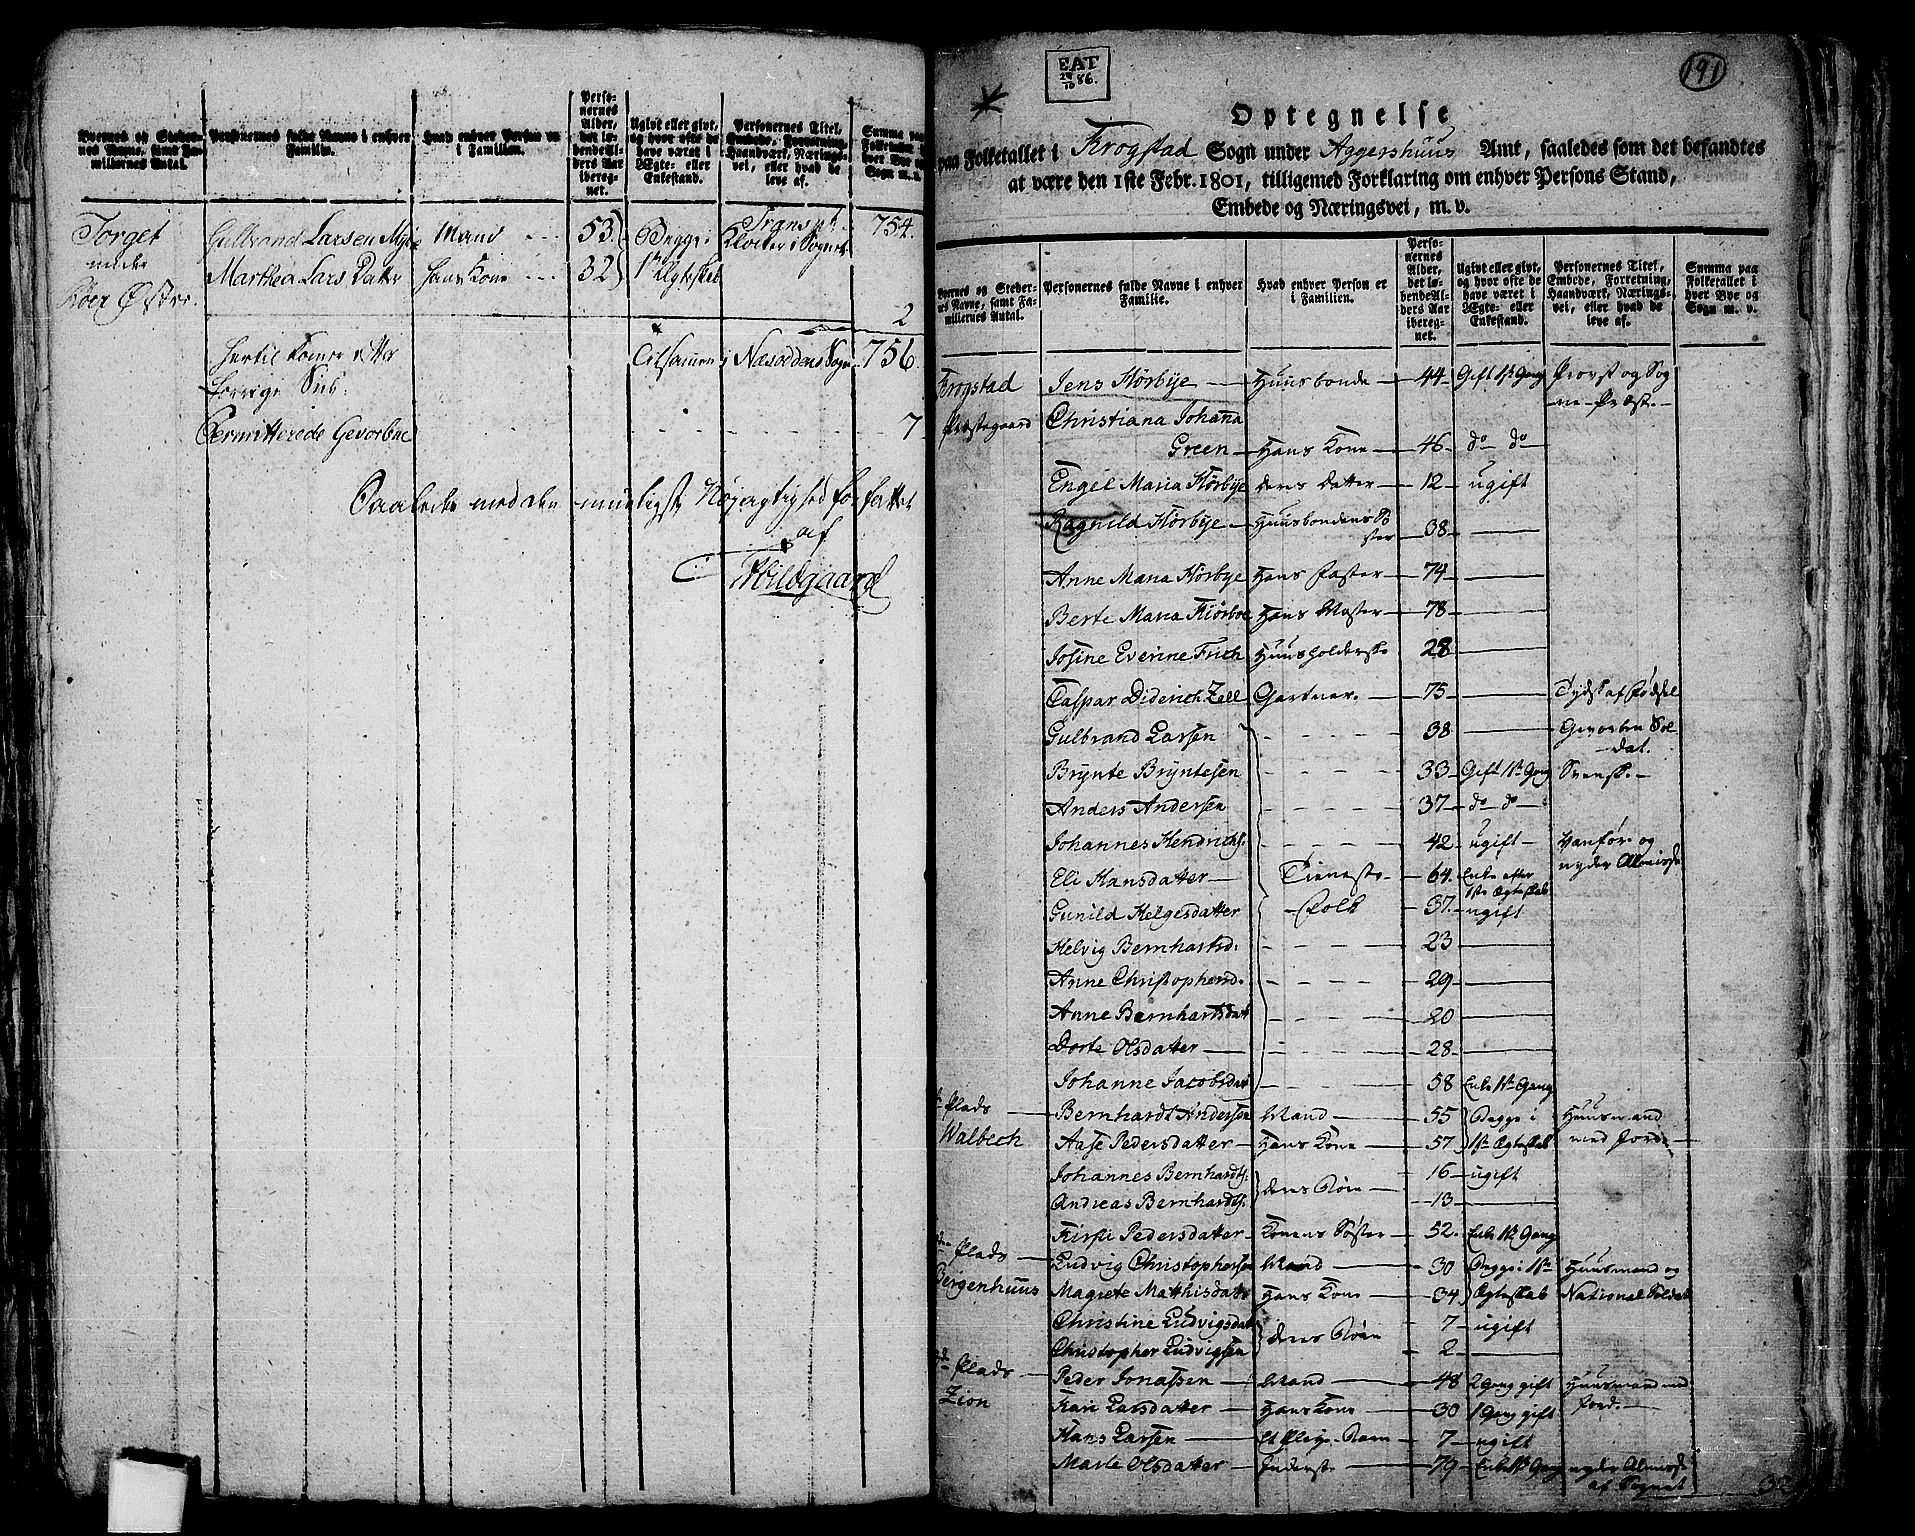 Personernes fulde Navne i enhver Familie.
Hvad enhver Person er i Familien.
Personernes Alder, det løbende Alders Aar iberegnet.
Ugivt eller givt, og hvor ofte de have været i Ægte- eller Enkestand.
Personernes Titel, Embede, Forretning, Haandværk, Næringsvei, eller hvad de leve af.
Summa paa Folketallet i hver Bye og Sogn m. v.
Torget Gulbrand Larsen Mand 53 Begge i 754
under Marthea Lars Datter Hans Kone 32 1ste Ægteskab
Koer Østre
2
Hertil Komer efter Tilsammen i Næsoddens Sogn 756
Permitterede Gevorbne 7
Saaledes med den mueligste Nøjagtighed forfattet
af
191
EAT
29/10 86.
Optegnelse
paa Folketallet i Krogstad Sogn under Aggershuus Amt, saaledes som det befandtes
at være den 1ste Febr. 1801, tilligemed Forklaring om enhver Persons Stand,
Embede og Næringsvei, m. v.
Byernes og Stedernes Navne, samt Familiernes Antal.
Personernes fulde Navne i enhver Familie.
Hvad enhver Person er i Familien.
Personernes Alder, det løbende Alders Aar iberegnet.
Ugivt eller givt, og hvor ofte de have været i Ægte- eller Enkestand.
Personernes Titel, Embede, Forretning, Haandværk, Næringsvei, eller hvad de leve af.
Summa paa Folketallet i hver Bye og Sogn m. v.
Krogstad Jens Hørbye Huusbonde 44 Gift 1ste Gang Provst og Sog
Præstegaard Christiana Johanna ne-Præst
Green Hans Kone 46 do do
Engel Maria Hørbye deres Datter 12 ugift
Ragnild Hørbye Huusbondens Sø
ster 38
Anne Maria Hørbye Hans Faster 74
Berte Maria Hans Moster 78
Josine Everine Frich Huusholderske 28
Caspar Diderich Zell Gartner 75 Tydsk af Fødsel
Gulbrand Larsen 38 Gevorben Sol
dat.
Brynte Bryntesen 33 Gift 1ste Gang Svensk
Anders Andersen 37 do do
Johannes Hendrichs. 42 ugift Vanfør og
Eli Hansdatter Tieneste 64 Enke efter nyder Almisse
1ste Ægteskab
Gunild Helgesdatter Folk 37 ugift
Helvig Bernhartsd. 23
Anne Christophersd. 29
Anne Bernhartsdat 20
Dorte Olsdatter 28
Johanne Jacobsdat 58 Enke 1ste Gang
Plads Bernhardt Andersen Mand 55 Begge i Huusmand
Walbech Aase Pedersdatter Hans Kone 57 1ste Ægteskab med Jord
Johannes Bernhardts. deres Børn 16 ugift
Andreas Bernhardts. 13
Kirsti Pedersdatter Konens Søster 52 Enke 1ste Gang
Plads Ludvig Christophersen Mand 30 Begge i 1ste Huusmand og
Bergenhuus Magrete Matthisdatter Hans Kone 34 Ægteskab National Soldat
Christine Ludvigsdat deres Børn 7 ugift
Christopher Ludvigsen 2
Plads Peder Jonassen Mand 48 2 Gang gift Huusmand med
Zion Kari Larsdatter Hans Kone 30 1 Gang gift Jord.
Hans Larsen et Pleje-Barn 7 ugift
Marte Olsdatter Inderste 79 Enke 1ste Gang nyder Almisse
af Sognet 32